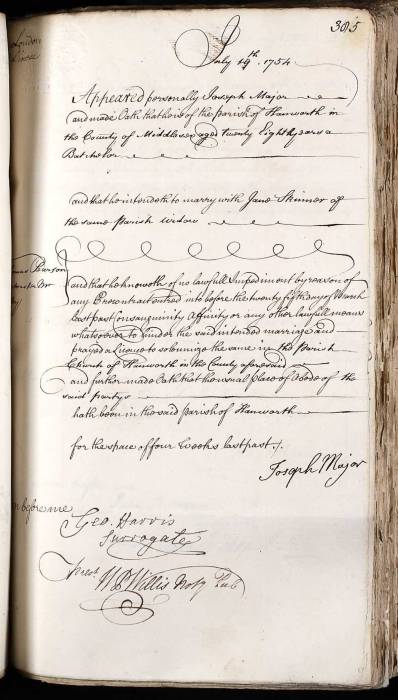 305
London
July 19th. 1754
Appeared personally Joseph Major
and made Oath that he is of the parish of Hanworth in
the County of Middlesex aged twenty Eight years a
Batchelor
and that he intendeth to marry with Jane Skinner of
the same Parish Widow
and that he knoweth of no lawfull Impediment by reason of
any Precontract entred into before the twenty fifth day of March
last past Consanguinity Affinity or any other lawfull means
whatsoever to hinder the said intended marriage and
prayed a Licence to solemnize the same in the Parish
Church of Hanworth in the County aforesaid
and further made Oath that the usual place of Abode of the
said partys
hath been in the said parish of Hanworth
for the space of four Weeks last past.
Joseph Major
before me
Geo. Harris
Surrogate
Willis Noty Pub